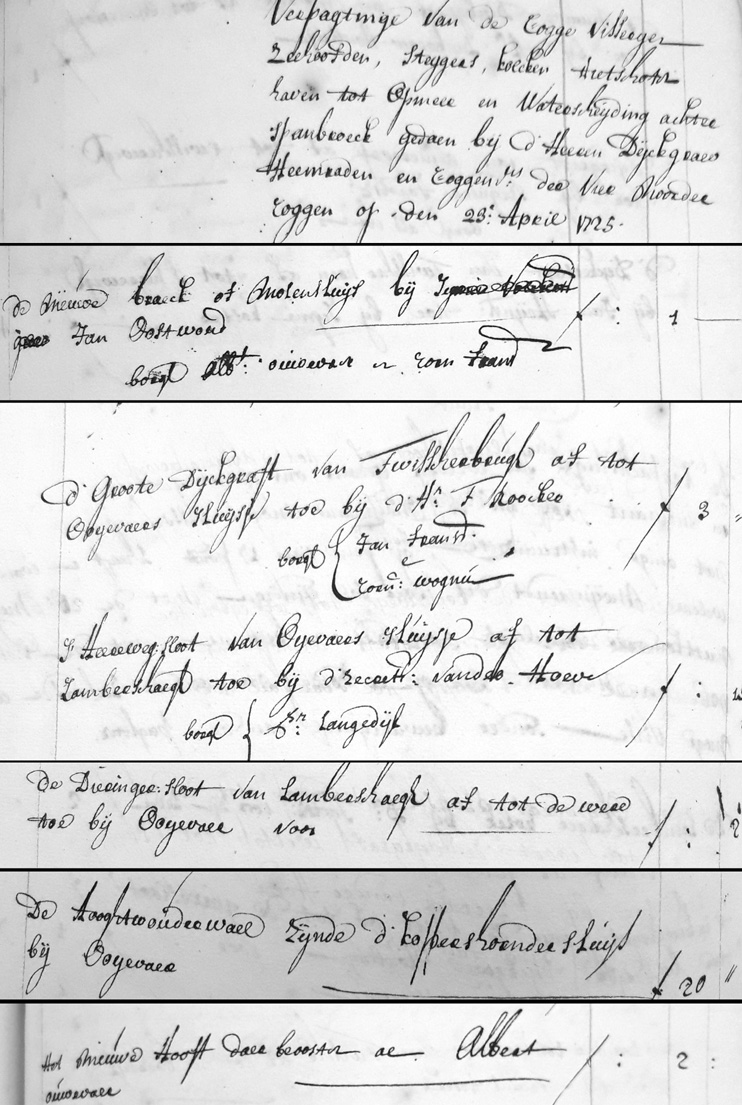 Verpagtinge van de Cogge Visserije
Zeehoofden, Steygers, hoecken Rietschoten
haven tot Opmeer en Waterscheijding achter
Spanbroeck gedaen bij d'Heeren Dijckgraeff
Heemraden en Coggen der Vier Noorder
Coggen op den 23e April 1725.
de Nieuwe braeck of Molensluijs bij
Jan Oostwoud ƒ : 1
borg Albt: ouwevaer en Corn: Jansd
d'Groote Dijckgraft van Twisckerbrugh af tot
Oyevaers Sluijse toe bij d'Hr. F Koocker ƒ 3 "
borge { Jan Jansd
e
Corn: wognu
S'Heereweg: sloot van Oyevaers Sluijse af tot
Lamberschaegh toe bij d'Secrets: vander Hoeve ƒ :
borg { Sr: Langedijk
De Dieringer: sloot van Lamberschaegh af tot de weere
toe bij Oyevaer voor ƒ : 2
De Hooghtwouder wael zijnde d'Coppershoender Sluijs
bij Oyevaer ƒ 20 "
Het Nieuwe Hooft daer beoosten ae Albert ƒ : 2 :
ouwevaer